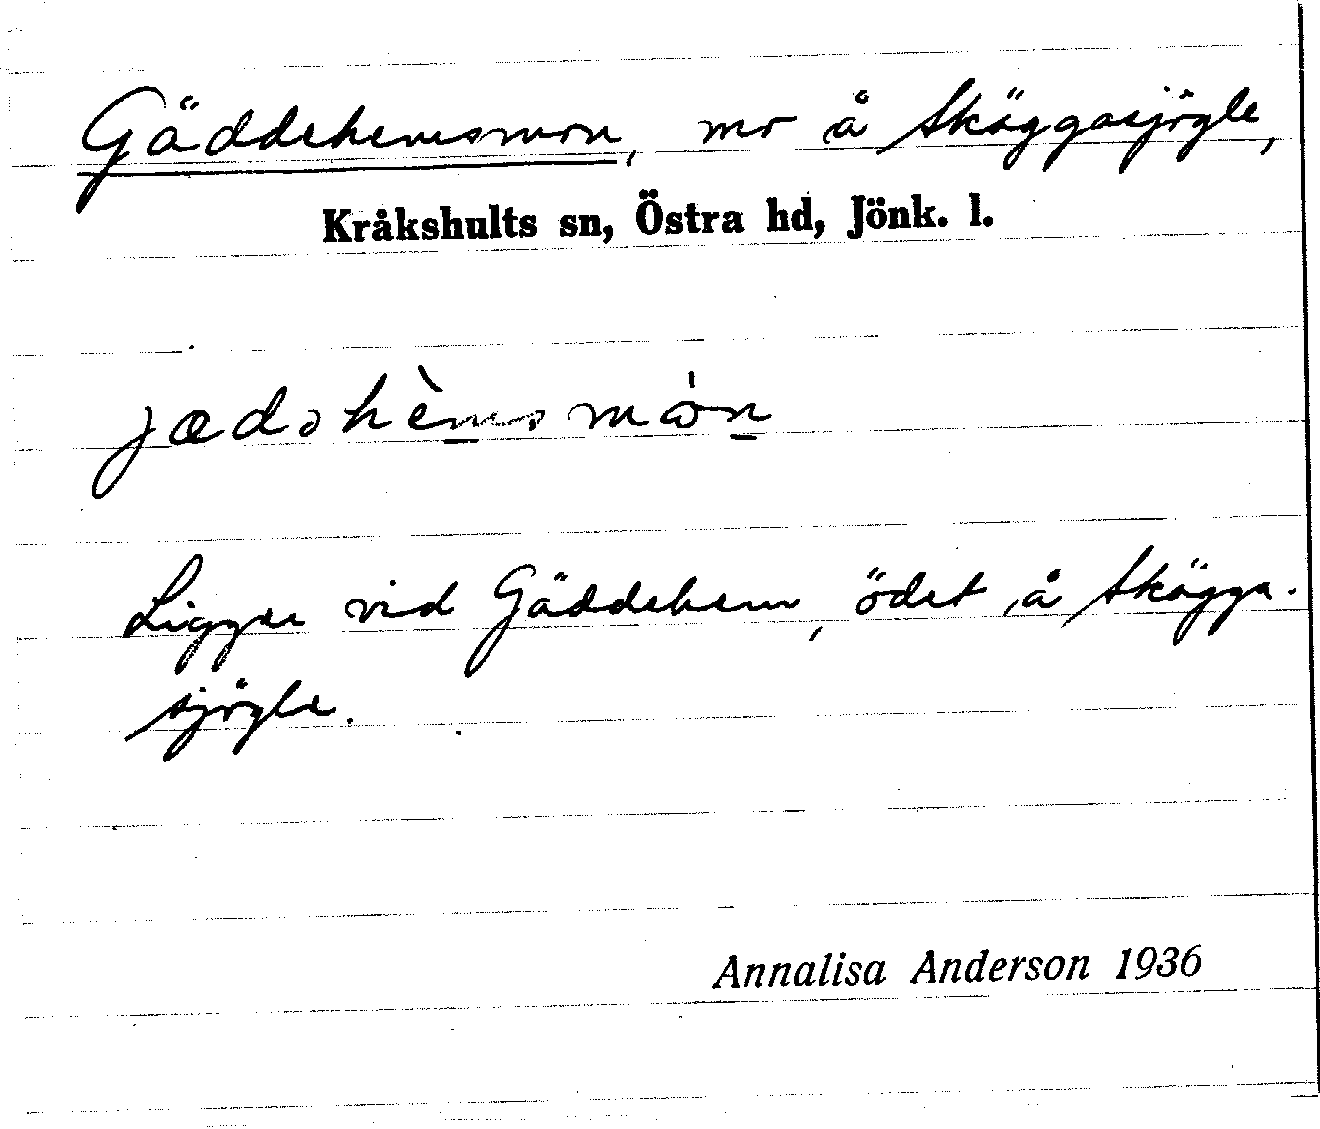 Gäddehemsmon, mo å Sköggasjögle,
Kråkshults sn, Östra hd, Jönk. l.
jædəhèmsmòn
Ligger vid Gäddehem, ödet å Skögga-
sjögle.
Annalisa Anderson 1936